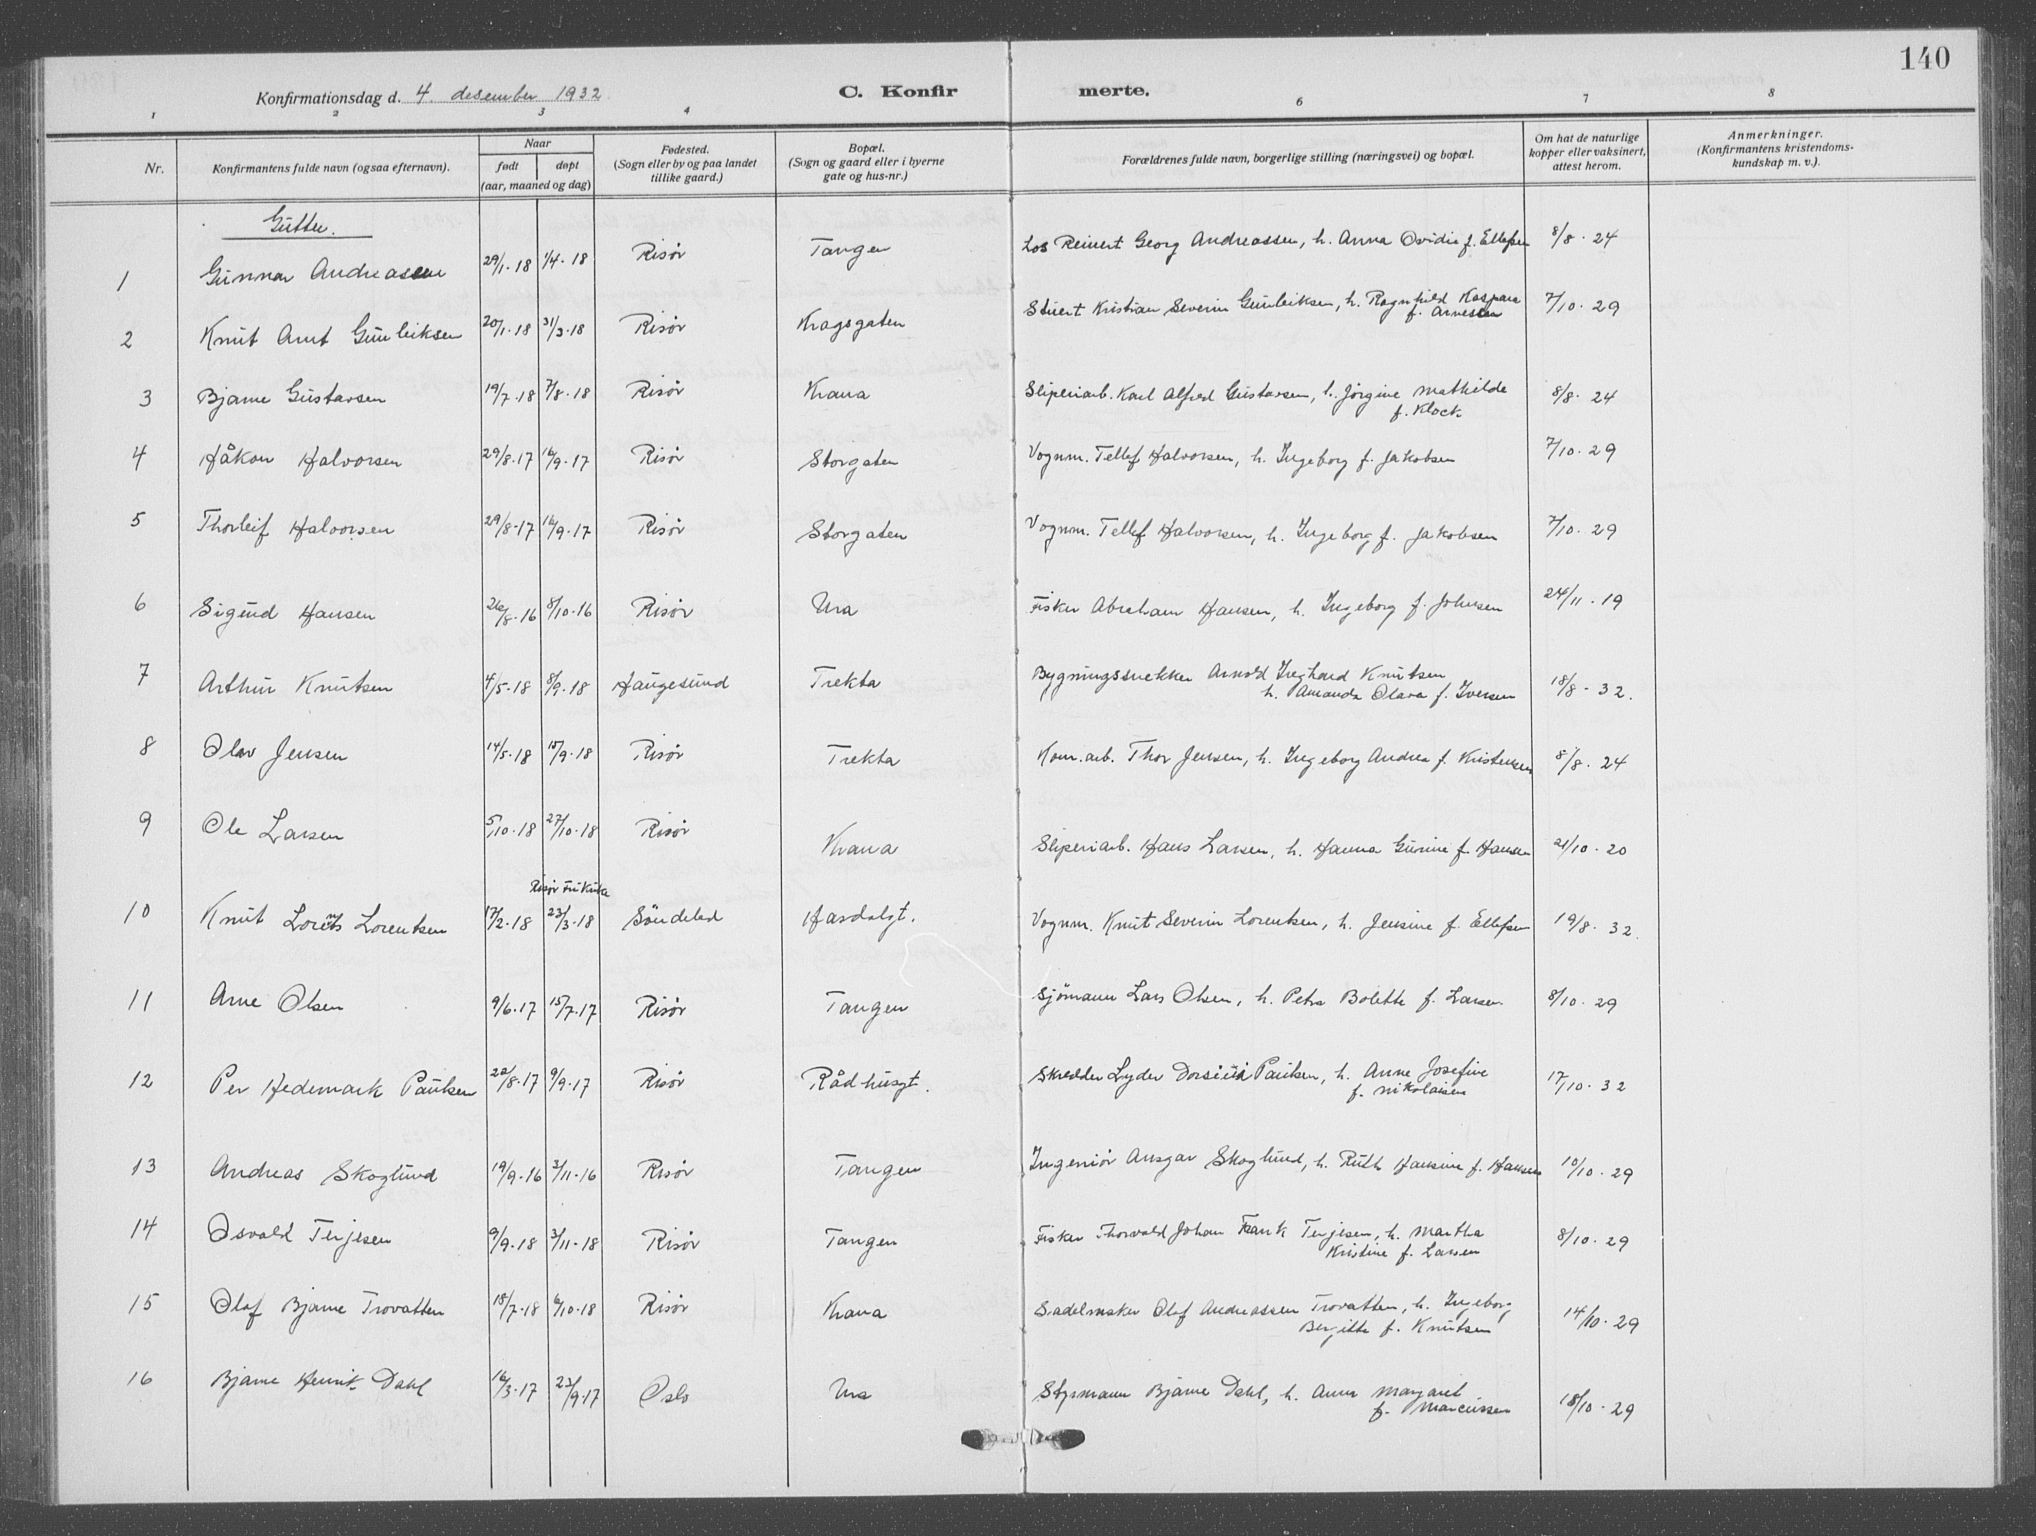 140
Konfirmationsdag d. 4. desember 1932
C. Konfir merte.
1 2 3 4 6 7 8
Nr.
Konfirmantens fulde navn (ogsaa efternavn).
Naar
født døpt
(aar, maaned og dag)
Fødested.
(Sogn eller by og paa landet
tillike gaard.)
Bopæl.
(Sogn og gaard eller i byerne
gate og hus-nr.)
Forældrenes fulde navn, borgerlige stilling (næringsvei) og bopæl.
Om hat de naturlige
kopper eller vaksinert,
attest herom.
Anmerkninger.
(Konfirmantens kristendoms-
kundskap m. v.).
Gutter.
1 Gunnar Andreassen 29/1-18 1/4-18 Risør Tangen Los Reinert Georg Andreassen, h. Anna Ovidia f. Ellefsen 8/8-24
2 Knut Arnt Gunleiksen 20/1-18 31/3-18 Risør Kragsgaten Stuert Kristian Severin Gunleiksen, h. Ragnhild Kaspara
f. Arnesen 7/10-29
3 Bjarne Gustavsen 19/7-18 7/8-18 Risør Krana Sliperiarb. Karl Alfred Gustavsen, h. Jørgine Mathilde
f. Klock 8/8-24
4 Håkon Halvorsen 29/8-17 16/9-17 Risør Storgaten Vognm. Tellef Halvorsen, h. Ingeborg f. Jakobsen 7/10-29
5 Thorleif Halvorsen 29/8-17 16/9-17 Risør Storgaten Vognm. Tellef Halvorsen, h. Ingeborg f. Jakobsen 7/10-29
6 Sigurd Hansen 26/8-16 8/10-16 Risør Ura Fisker Abraham Hansen, h. Ingeborg f. Johnsen 24/11-19
7 Arthur Knutsen 4/5-18 8/9-18 Haugesund Trekta Bygningssnekker Arnold Knutsen
h. Amanda Olava f. Iversen 18/8-32.
8 Olav Jensen 14/5-18 15/9-18 Risør Trekta Kom.arb. Thor Jensen, h. Ingeborg Andrea f. Kristensen 8/8-24
9 Ole Larsen 5/10-18 27/10-18 Risør Krana Sliperiarb. Hans Larsen, h. Hanna Gurine f. Hansen 21/10-20
Risør Frikirke
10 Knut Lorents Lorentsen 17/2-18 23/3-18 Söndeled Hasdalgt. Vognm. Knut Severin Lorentsen, h. Jensine f. Ellefsen 19/8-32.
11 Arne Olsen 9/6-17 15/7-17 Risør Tangen Sjömann Lars Olsen, h. Petra Bolette f. Larsen 8/10-29
12 Per Hedemark Paulsen 22/8-17 9/9-17 Risør Rådhusgt. Skredder Lyder Paulsen, h. Anne Josefine
f. Nikolaisen 17/10-32
13 Andreas Skoglund 19/9-16 3/11-16 Risør Tangen Ingeniør Ansgar Skoglund, h. Ruth Hansine f. Hansen 10/10-29
14 Osvald Terjesen 9/9-18 3/11-18 Risør Tangen Fisker Thorvald Johan Frank Terjesen, h. Martha
Kristine f. Larsen 8/10-29
15 Olaf Bjarne Trovatten 18/7-18 6/10-18 Risør Krana Sadelmaker Olaf Andreassen Trovatten, h. Ingeborg
Bergitte f. Knutsen 14/10-29
16 Bjarne Henrik Dahl 16/3-17 23/9-17 Oslo Ura Styrmann Bjarne Dahl, h. Anna Margaret
f. Marcussen 18/10-29